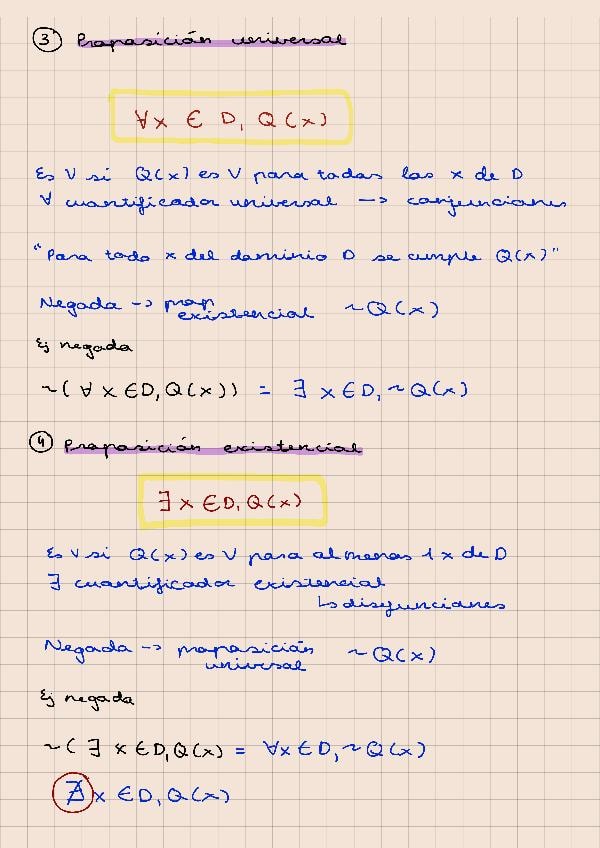 ③ Proposición universal
∀x ∈ D, Q(x)
Es V si Q(x) es V para todas las x de D
∀ cuantificador universal → conjunciones
"Para todo x del dominio D se cumple Q(x)"
Negada → prop existencial ~Q(x)
Ej negada
~(∀ x ∈ D, Q(x)) = ∃ x ∈ D, ~Q(x)
④ Proposición existencial
∃ x ∈ D, Q(x)
Es V si Q(x) es V para al menos 1 x de D
∃ cuantificador existencial
↳ disyunciones
Negada → proposición universal ~Q(x)
Ej negada
~(∃ x ∈ D, Q(x) = ∀x ∈ D, ~Q(x)
∄x ∈ D, Q(x)